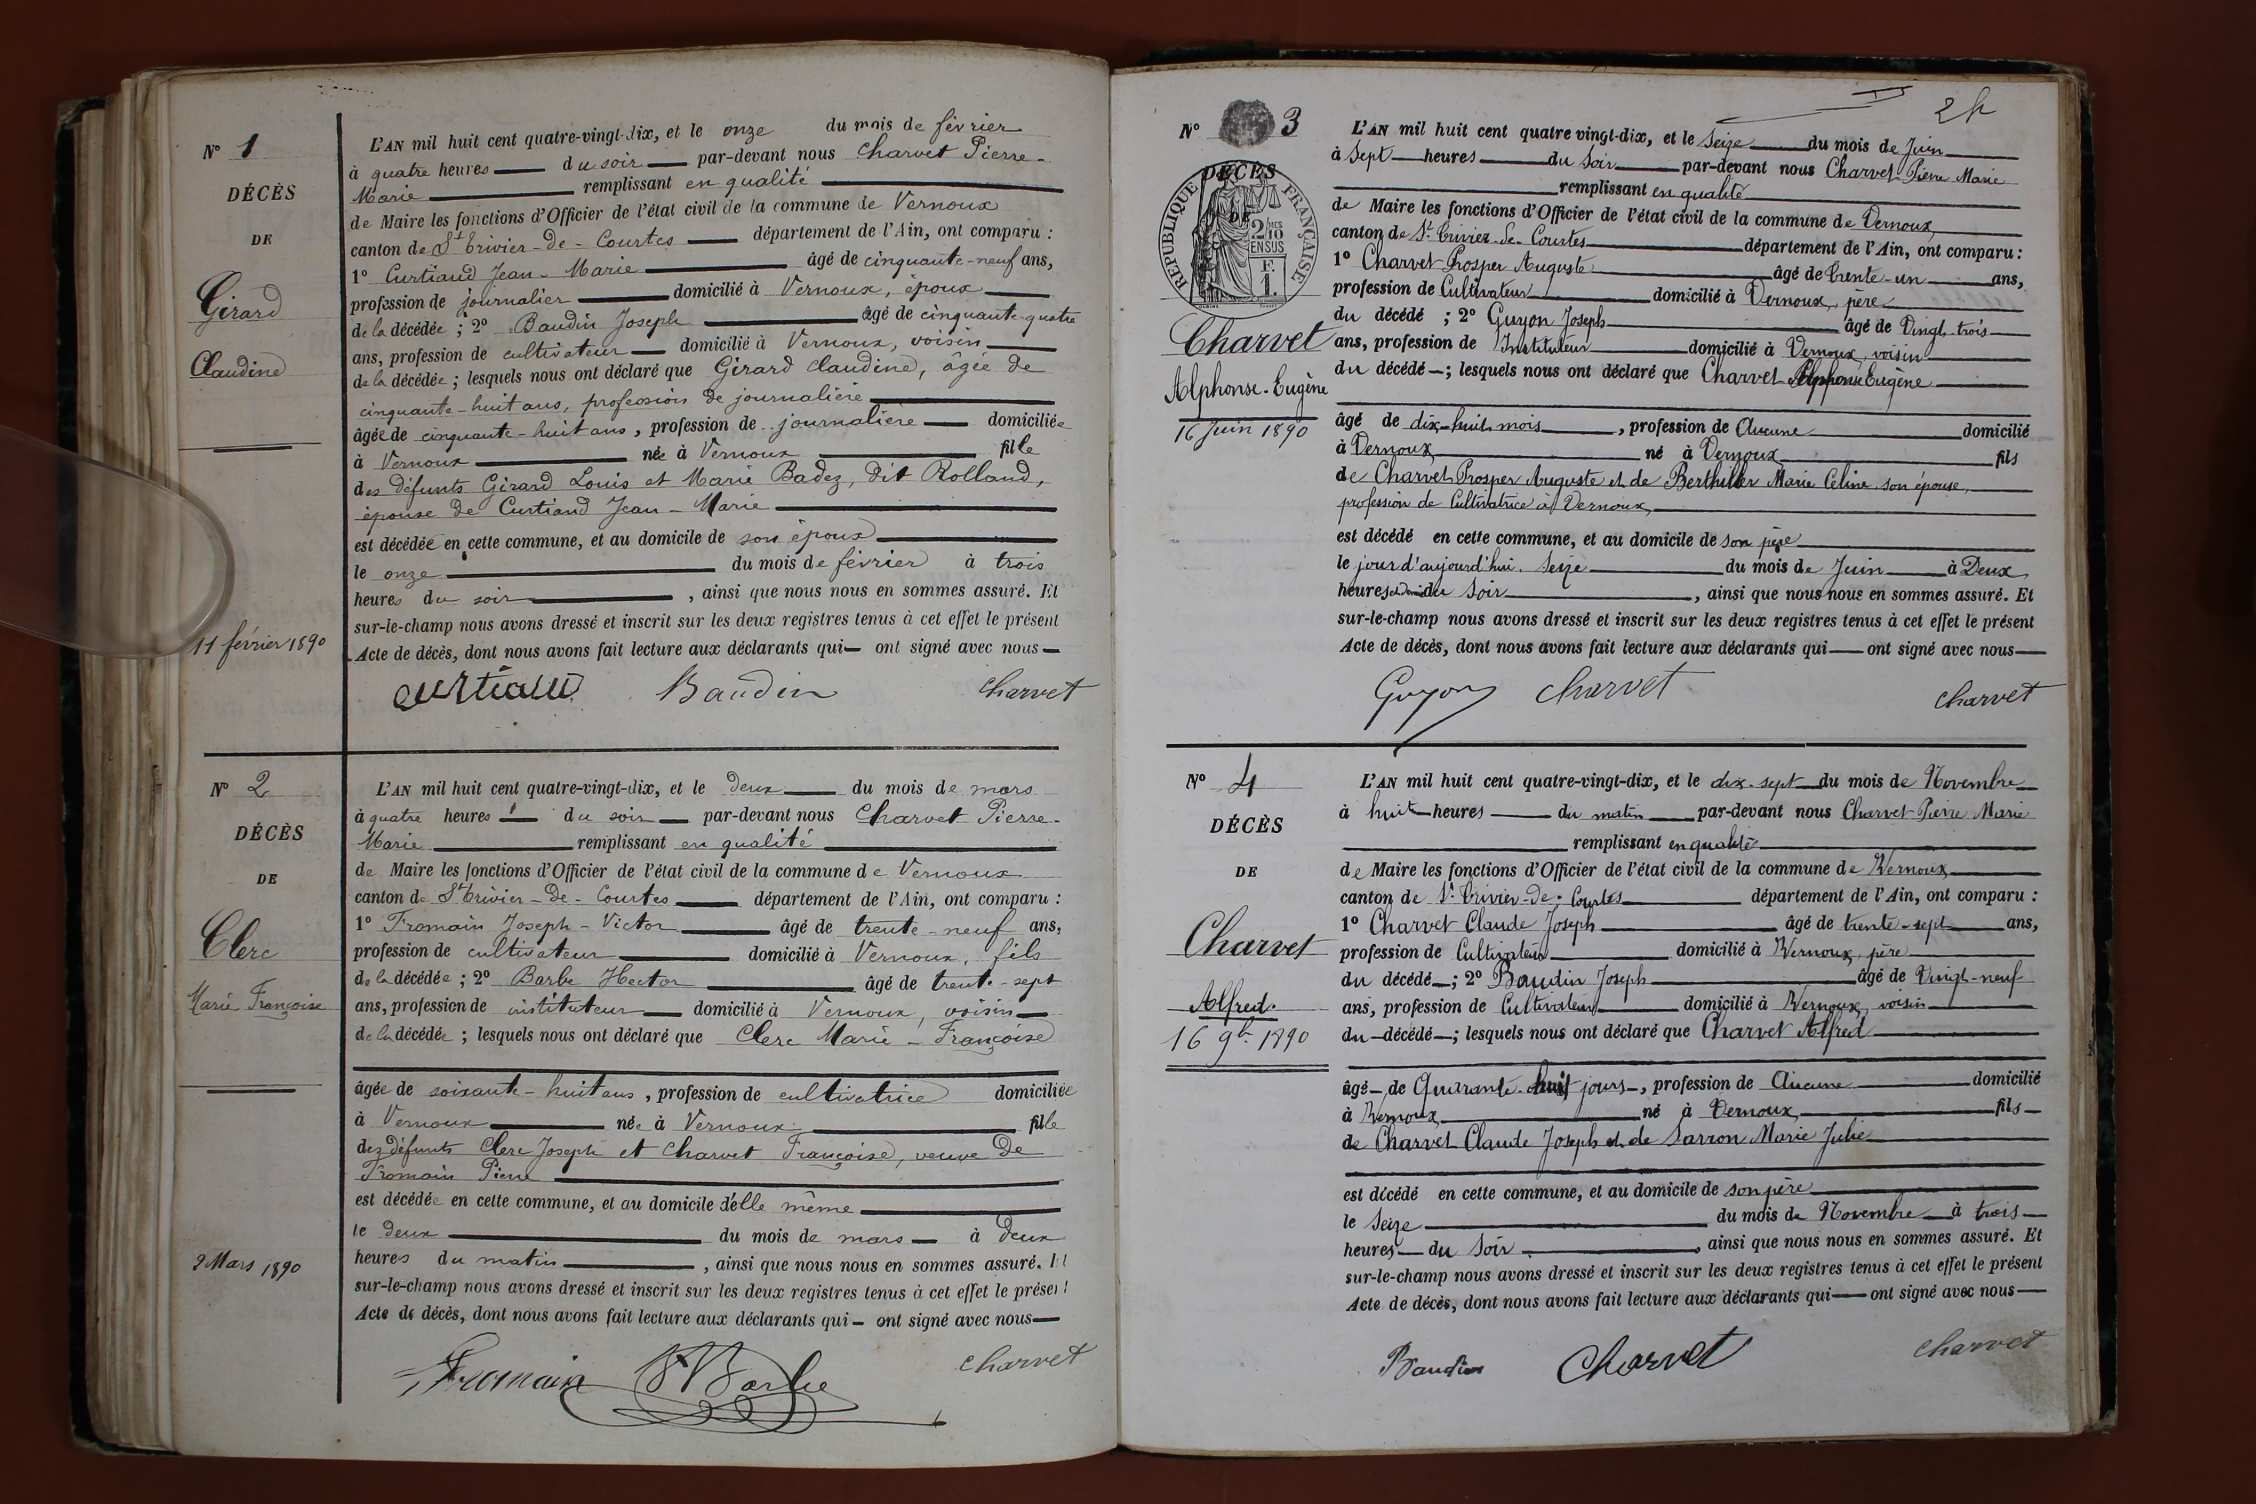 N° 1
DÉCÈS
DE
Girard
Claudine
11 février 1890
L'AN mil huit cent quatre-vingt-dix, et le onze du mois de février
à quatre heures du soir par-devant nous Charvet Pierre-
Marie remplissant en qualité
de Maire les fonctions d'Officier de l'état civil de la commune de Vernoux
canton de St Trivier-de-Courtes département de l'Ain, ont comparu :
1° Curtiaud Jean-Marie âgé de cinquante-neuf ans,
profession de journalier domicilié à Vernoux, époux
de la décédée ; 2° Baudin Joseph âgé de cinquante-quatre
ans, profession de cultivateur domicilié à Vernoux, voisin
de la décédée ; lesquels nous ont déclaré que Girard Claudine, âgée de
cinquante-huit ans, profession de journalière
âgée de cinquante-huit ans, profession de journalière domiciliée
à Vernoux née à Vernoux fille
des défunts Girard Louis et Marie Badez, dit Rolland,
épouse de Curtiaud Jean-Marie
est décédée en cette commune, et au domicile de son époux
le onze du mois de février à trois
heures du soir, ainsi que nous nous en sommes assuré. Et
sur-le-champ nous avons dressé et inscrit sur les deux registres tenus à cet effet le présent
Acte de décès, dont nous avons fait lecture aux déclarants qui ont signé avec nous
curtiaud Baudin Charvet
N° 2
DÉCÈS
DE
Clerc
Marie Françoise
2 Mars 1890
L'AN mil huit cent quatre-vingt-dix, et le deux du mois de mars
à quatre heures du soir par-devant nous Charvet Pierre-
Marie remplissant en qualité
de Maire les fonctions d'Officier de l'état civil de la commune de Vernoux
canton de St Trivier-de-Courtes département de l'Ain, ont comparu :
1° Fromain Joseph-Victor âgé de trente-neuf ans,
profession de cultivateur domicilié à Vernoux, fils
de la décédée ; 2° Barbe Hector âgé de trente-sept
ans, profession de instituteur domicilié à Vernoux, voisin
de la décédée ; lesquels nous ont déclaré que Clerc Marie-Françoise
âgée de soixante-huit ans, profession de cultivatrice domiciliée
à Vernoux née à Vernoux fille
des défunts Clerc Joseph et Charvet Françoise, veuve de
Fromain Pierre
est décédée en cette commune, et au domicile d'elle même
le deux du mois de mars à deux
heures du matin, ainsi que nous nous en sommes assuré. Et
sur-le-champ nous avons dressé et inscrit sur les deux registres tenus à cet effet le présent
Acte de décès, dont nous avons fait lecture aux déclarants qui ont signé avec nous
Fromain HBarbe Charvet
N° 3
DÉCÈS
DE
RÉPUBLIQUE FRANÇAISE
2/10
EN SUS
F.
1.
Charvet
Alphonse-Eugène
16 Juin 1890
L'AN mil huit cent quatre vingt-dix, et le Seize du mois de Juin
à Sept heures du Soir par-devant nous Charvet Pierre Marie
remplissant en qualité
de Maire les fonctions d'Officier de l'état civil de la commune de Vernoux
canton de St Trivier-de-Courtes département de l'Ain, ont comparu :
1° Charvet Prosper Auguste âgé de trente-un ans,
profession de Cultivateur domicilié à Vernoux, père
du décédé ; 2° Guyon Joseph âgé de Vingt-trois
ans, profession de Instituteur domicilié à Vernoux, voisin
du décédé ; lesquels nous ont déclaré que Charvet Alphonse Eugène
âgé de dix-huit mois, profession de Aucune domicilié
à Vernoux né à Vernoux fils
de Charvet Prosper Auguste et de Berthillier Marie Céline, son épouse,
profession de Cultivatrice à Vernoux,
est décédé en cette commune, et au domicile de son père
le jour d'aujourd'hui Seize du mois de Juin à Deux
heures et demie du Soir, ainsi que nous nous en sommes assuré. Et
sur-le-champ nous avons dressé et inscrit sur les deux registres tenus à cet effet le présent
Acte de décès, dont nous avons fait lecture aux déclarants qui ont signé avec nous
Guyon Charvet Charvet
N° 4
DÉCÈS
DE
Charvet
Alfred.
16 9b 1890
L'AN mil huit cent quatre-vingt-dix, et le dix-sept du mois de Novembre
à huit heures du matin par-devant nous Charvet Pierre Marie
remplissant en qualité
de Maire les fonctions d'Officier de l'état civil de la commune de Vernoux
canton de St Trivier-de-Courtes département de l'Ain, ont comparu :
1° Charvet Claude Joseph âgé de trente-sept ans,
profession de Cultivateur domicilié à Vernoux, père
du décédé ; 2° Baudin Joseph âgé de Vingt-neuf
ans, profession de Cultivateur domicilié à Vernoux, voisin
du décédé ; lesquels nous ont déclaré que Charvet Alfred
âgé de Quarante-huit jours, profession de Aucune domicilié
à Vernoux né à Vernoux fils
de Charvet Claude Joseph et de Sarron Marie Julie
est décédé en cette commune, et au domicile de son père
le Seize du mois de Novembre à trois
heures du Soir, ainsi que nous nous en sommes assuré. Et
sur-le-champ nous avons dressé et inscrit sur les deux registres tenus à cet effet le présent
Acte de décès, dont nous avons fait lecture aux déclarants qui ont signé avec nous
Baudin Charvet Charvet